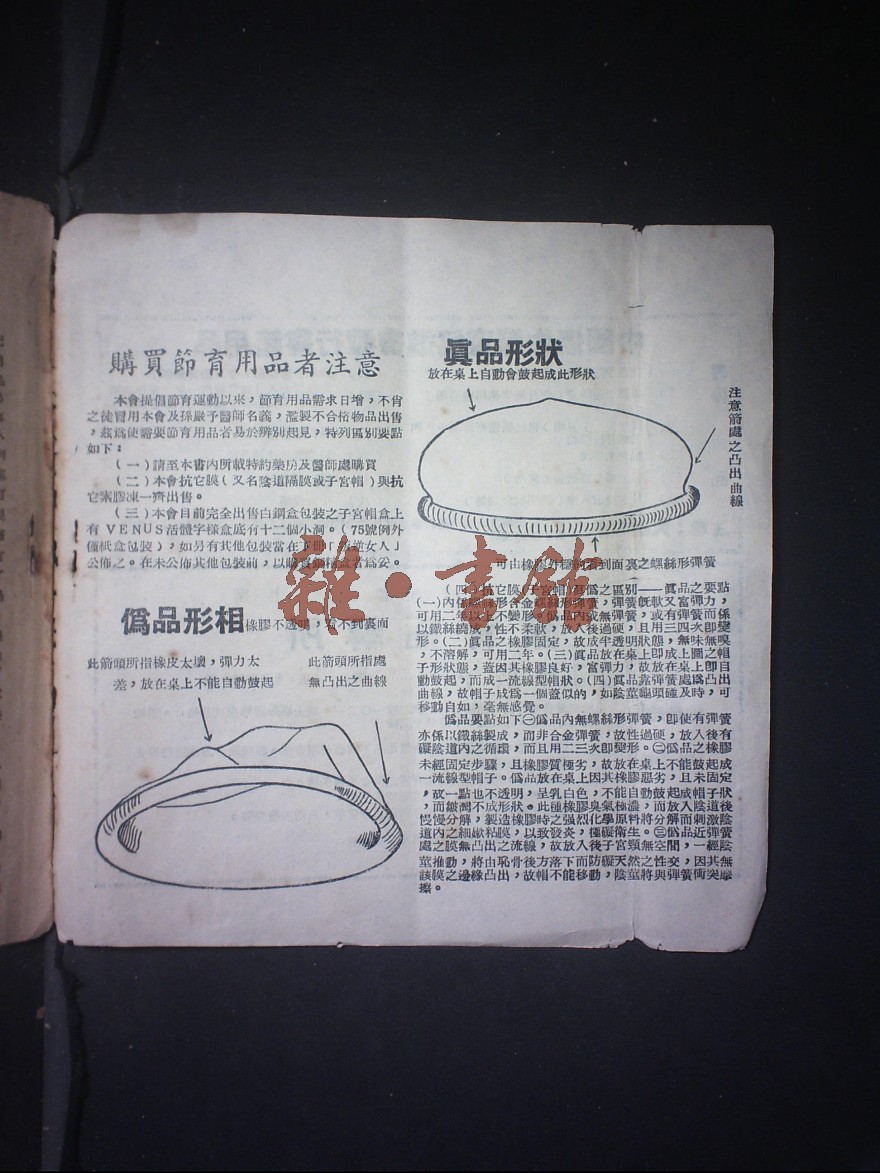 購買節育用品者注意
本會提倡節育運動以來，節育用品需求日增，不肯
之徒冒用本會及孫嚴予醫師名義，濫製不合格物品出售
，茲爲使需要節育用品者易於辨別起見，特列區別要點
如下：
(一)請至本書內所載特約藥房及醫師處購買
(二)本會抗它膜(又名陰道隔膜或子宮帽)與抗
它素膠凍一齊出售。
(三)本會目前完全出售白鋼盒包裝之子宮帽盒上
有VENUS活體字樣盒底有十二個小洞。(75號例外
僅紙盒包裝)，如另有其他包裝當在下冊「 女人」
公佈之。在未公佈其他包裝前，以購買 盒者爲妥。
僞品形相橡膠不透明，看不到裏面
此箭頭所指橡皮太壞，彈力太
差，放在桌上不能自動鼓起
此箭頭所指處
無凸出之曲線
眞品形狀
放在桌上自動會鼓起成此形狀
注意箭處之凸出曲線
可由橡膠外 看到面裏之螺絲形彈簧
(四)抗它膜(子宮帽)眞僞之區別——眞品之要點
(一)內係螺絲形合金螺絲形彈簧，彈簧旣軟又富彈力，
可用二年以上不變形。僞品內或無彈簧，或有彈簧而係
以鐵絲製成，性不柔軟，放入後過硬，且用三四次卽變
形。(二)眞品之橡膠固定，故成半透明狀態，無味無嗅
，不溶解，可用二年。(三)眞品放在桌上卽成上圖之帽
子形狀態，蓋因其橡膠良好，富彈力，故放在桌上卽自
動鼓起，而成一流線型帽狀。(四)眞品靠彈簧處爲凸出
曲線，故帽子成爲一個蓋似的，如陰莖龜頭碰及時，可
移動自如，毫無感覺。
僞品要點如下㊀僞品內無螺絲形彈簧，卽使有彈簧
亦係以鐵絲製成，而非合金彈簧，故性過硬，放入後有
礙陰道內之循環，而且用二三次卽變形。㊁僞品之橡膠
未經固定步驟，且橡膠質極劣，故放在桌上不能鼓起成
一流線型帽子。僞品放在桌上因其橡膠惡劣，且未固定
，故一點也不透明，呈乳白色，不能自動鼓起成帽子狀
，而皺濶不成形狀。此種橡膠臭氣極濃，而放入陰道後
慢慢分解，製造橡膠時之强烈化學原料將分解而刺激陰
道內之細緻粘膜，以致發炎，極礙衛生。㊂僞品近彈簧
處之膜無凸出之流線，故放入後子宮頸無空間，一經陰
莖推動，將由恥骨後方落下而防礙天然之性交，因其無
該膜之邊緣凸出，故帽不能移動，陰莖將與彈簧衝突摩
擦。
雜·書館